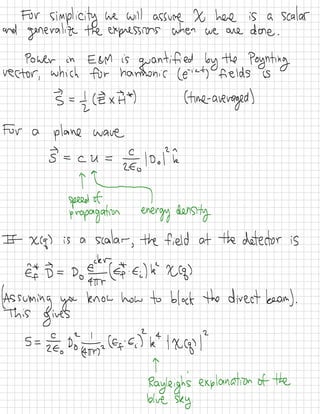 For simplicity we will assume χ here is a scalar
and generalize the expressions when we are done.
Power in E&M is quantified by the Poynting
vector, which for harmonic (e^{-iωt}) fields is
S⃗ = 1/2 (E⃗ × H⃗*) (time-averaged)
For a plane wave
S⃗ = c u = c/2ε₀ |D₀|² k̂
speed of
propagation energy density
If χ(q) is a scalar, the field at the detector is
ε̂_f* · D⃗ = D₀ e^{ikr}/4πr (ε_f* · ε_i) k² χ(q)
(Assuming you know how to block the direct beam).
This gives
S = c/2ε₀ D₀² 1/(4πr)² (ε_f · ε_i)² k⁴ |χ(q)|²
Rayleigh's explanation of the
blue sky